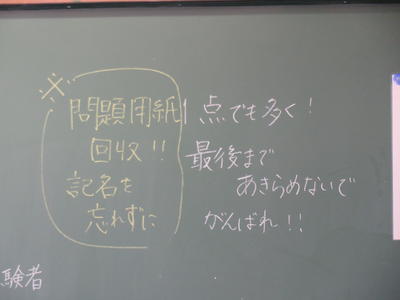 ※
問題用紙
回収!!
記名を
忘れずに
1点でも多く!
最後まで
あきらめないで
がんばれ!!
験者